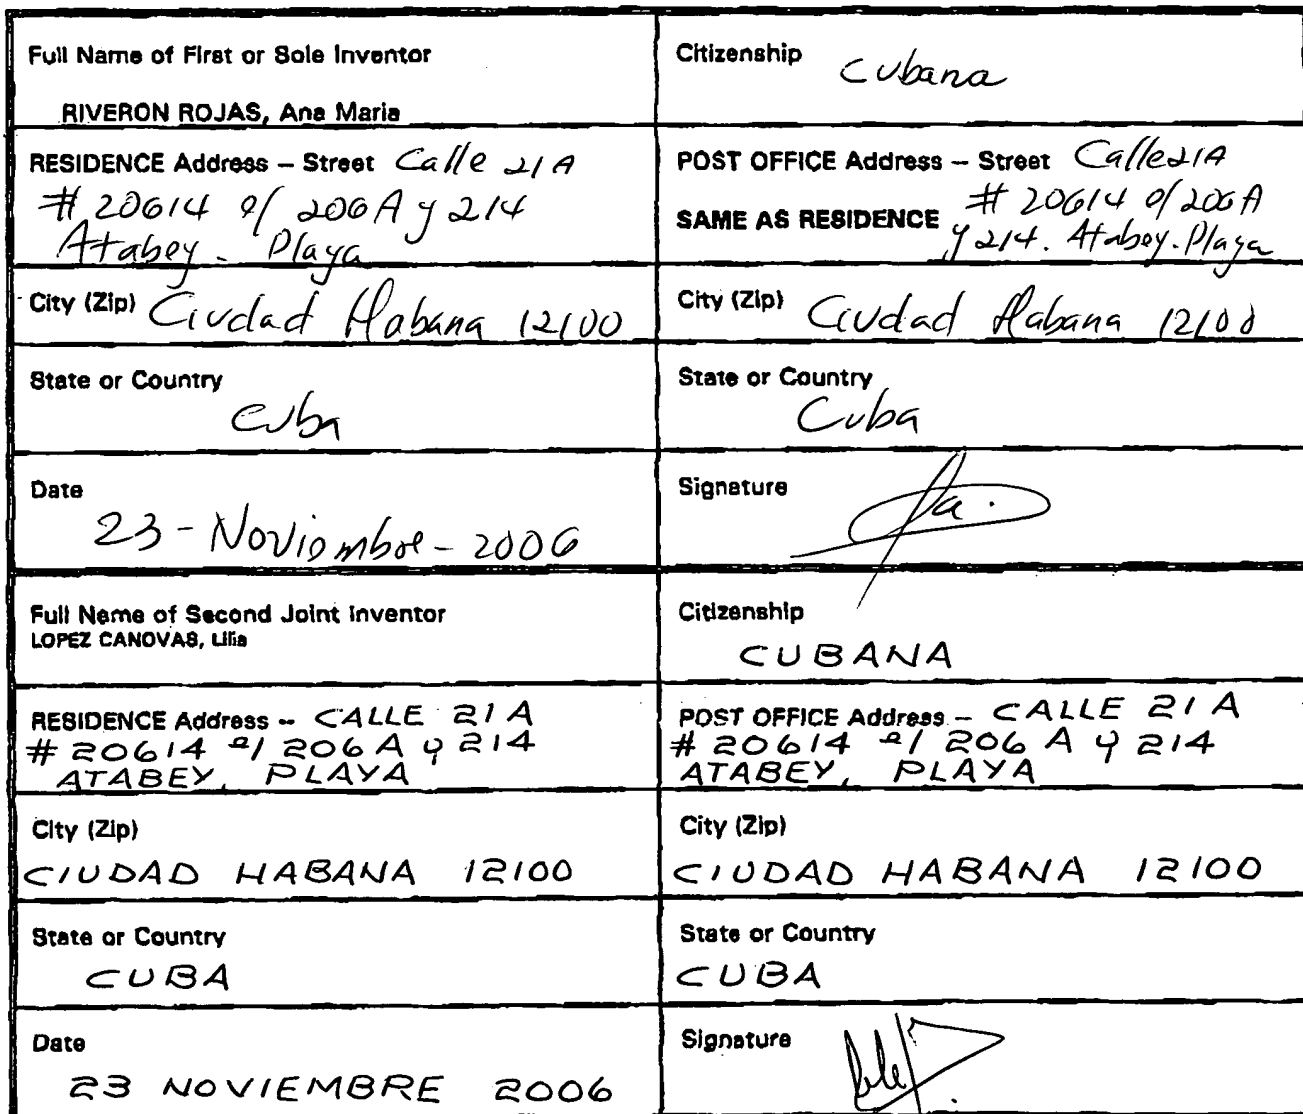 Full Name of First or Sole Inventor
RIVERON ROJAS, Ana Maria
Citizenship Cubana
RESIDENCE Address – Street Calle 21A
# 20614 e/ 206A y 214
Atabey - Playa
POST OFFICE Address – Street Calle 21A
SAME AS RESIDENCE # 20614 e/ 206A
y 214. Atabey. Playa
City (Zip) Ciudad Habana 12100
City (Zip) Ciudad Habana 12100
State or Country
Cuba
State or Country
Cuba
Date
23 - Noviembre - 2006
Signature
Full Name of Second Joint Inventor
LOPEZ CANOVAS, Lilia
Citizenship
CUBANA
RESIDENCE Address – CALLE 21 A
# 20614 e/ 206 A y 214
ATABEY, PLAYA
POST OFFICE Address – CALLE 21 A
# 20614 e/ 206 A y 214
ATABEY, PLAYA
City (Zip)
CIUDAD HABANA 12100
City (Zip)
CIUDAD HABANA 12100
State or Country
CUBA
State or Country
CUBA
Date
23 NOVIEMBRE 2006
Signature